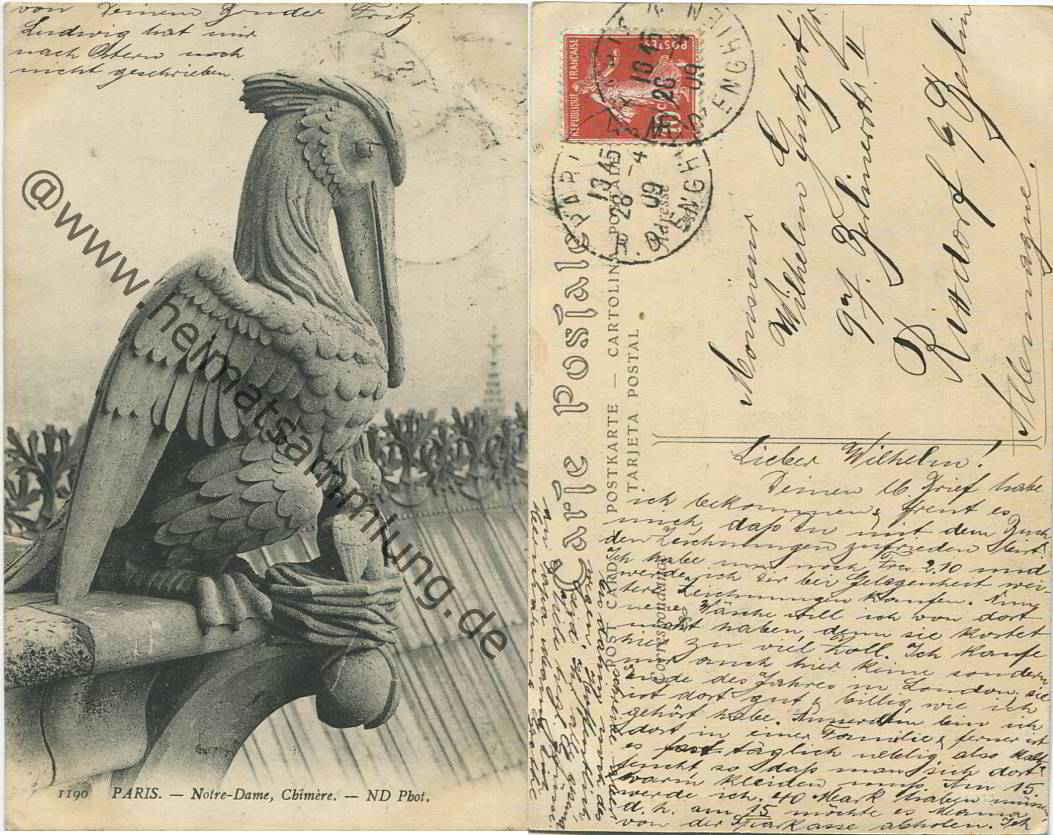 von Deinem Bruder Fritz
Ludwig hat mir
nach Ostern noch
nicht geschrieben.
@www.heimatsammlung.de
1190 PARIS. — Notre-Dame, Chimère. — ND Phot.
RÉPUBLIQUE FRANÇAISE
10c
POSTES
ENGHIEN
18 45
28 -4
09
PARIS
ENGHIEN
18 45
28 -4
09
Carte Postale
POST CARD — POSTKARTE — CARTOLINA POSTALE
TARJETA POSTAL
Correspondance
Adresse
Monsieur
Wilhelm
97 Berlinerstr. II
Rixdorf b/ Berlin
Allemagne.
Lieber Wilhelm!
Deinen lb. Brief habe
ich bekommen & freut es
mich, daß Du mit dem Buch
den Zeichnungen zufrieden bist
Ich habe nun noch Frs. 2.10 und
werde ich Dir bei Gelegenheit wei-
tere Zeichnungen kaufen.
Wäsche will ich von dort
nicht haben, denn sie kostet
hier zu viel Zoll. Ich kaufe
mir auch hier keine sondern
Ende des Jahres in London, sie
ist dort gut & billig wie ich
gehört habe. Ausserdem bin ich
dort in einer Familie & ferner ist
es fast täglich neblig also kalt
feucht so daß man sich dort
warm kleiden muss. Am 15.
werde ich 40 Mark haben müssen
d. h. am 15 möchte es Mama
von der Sparkasse abholen. Ich